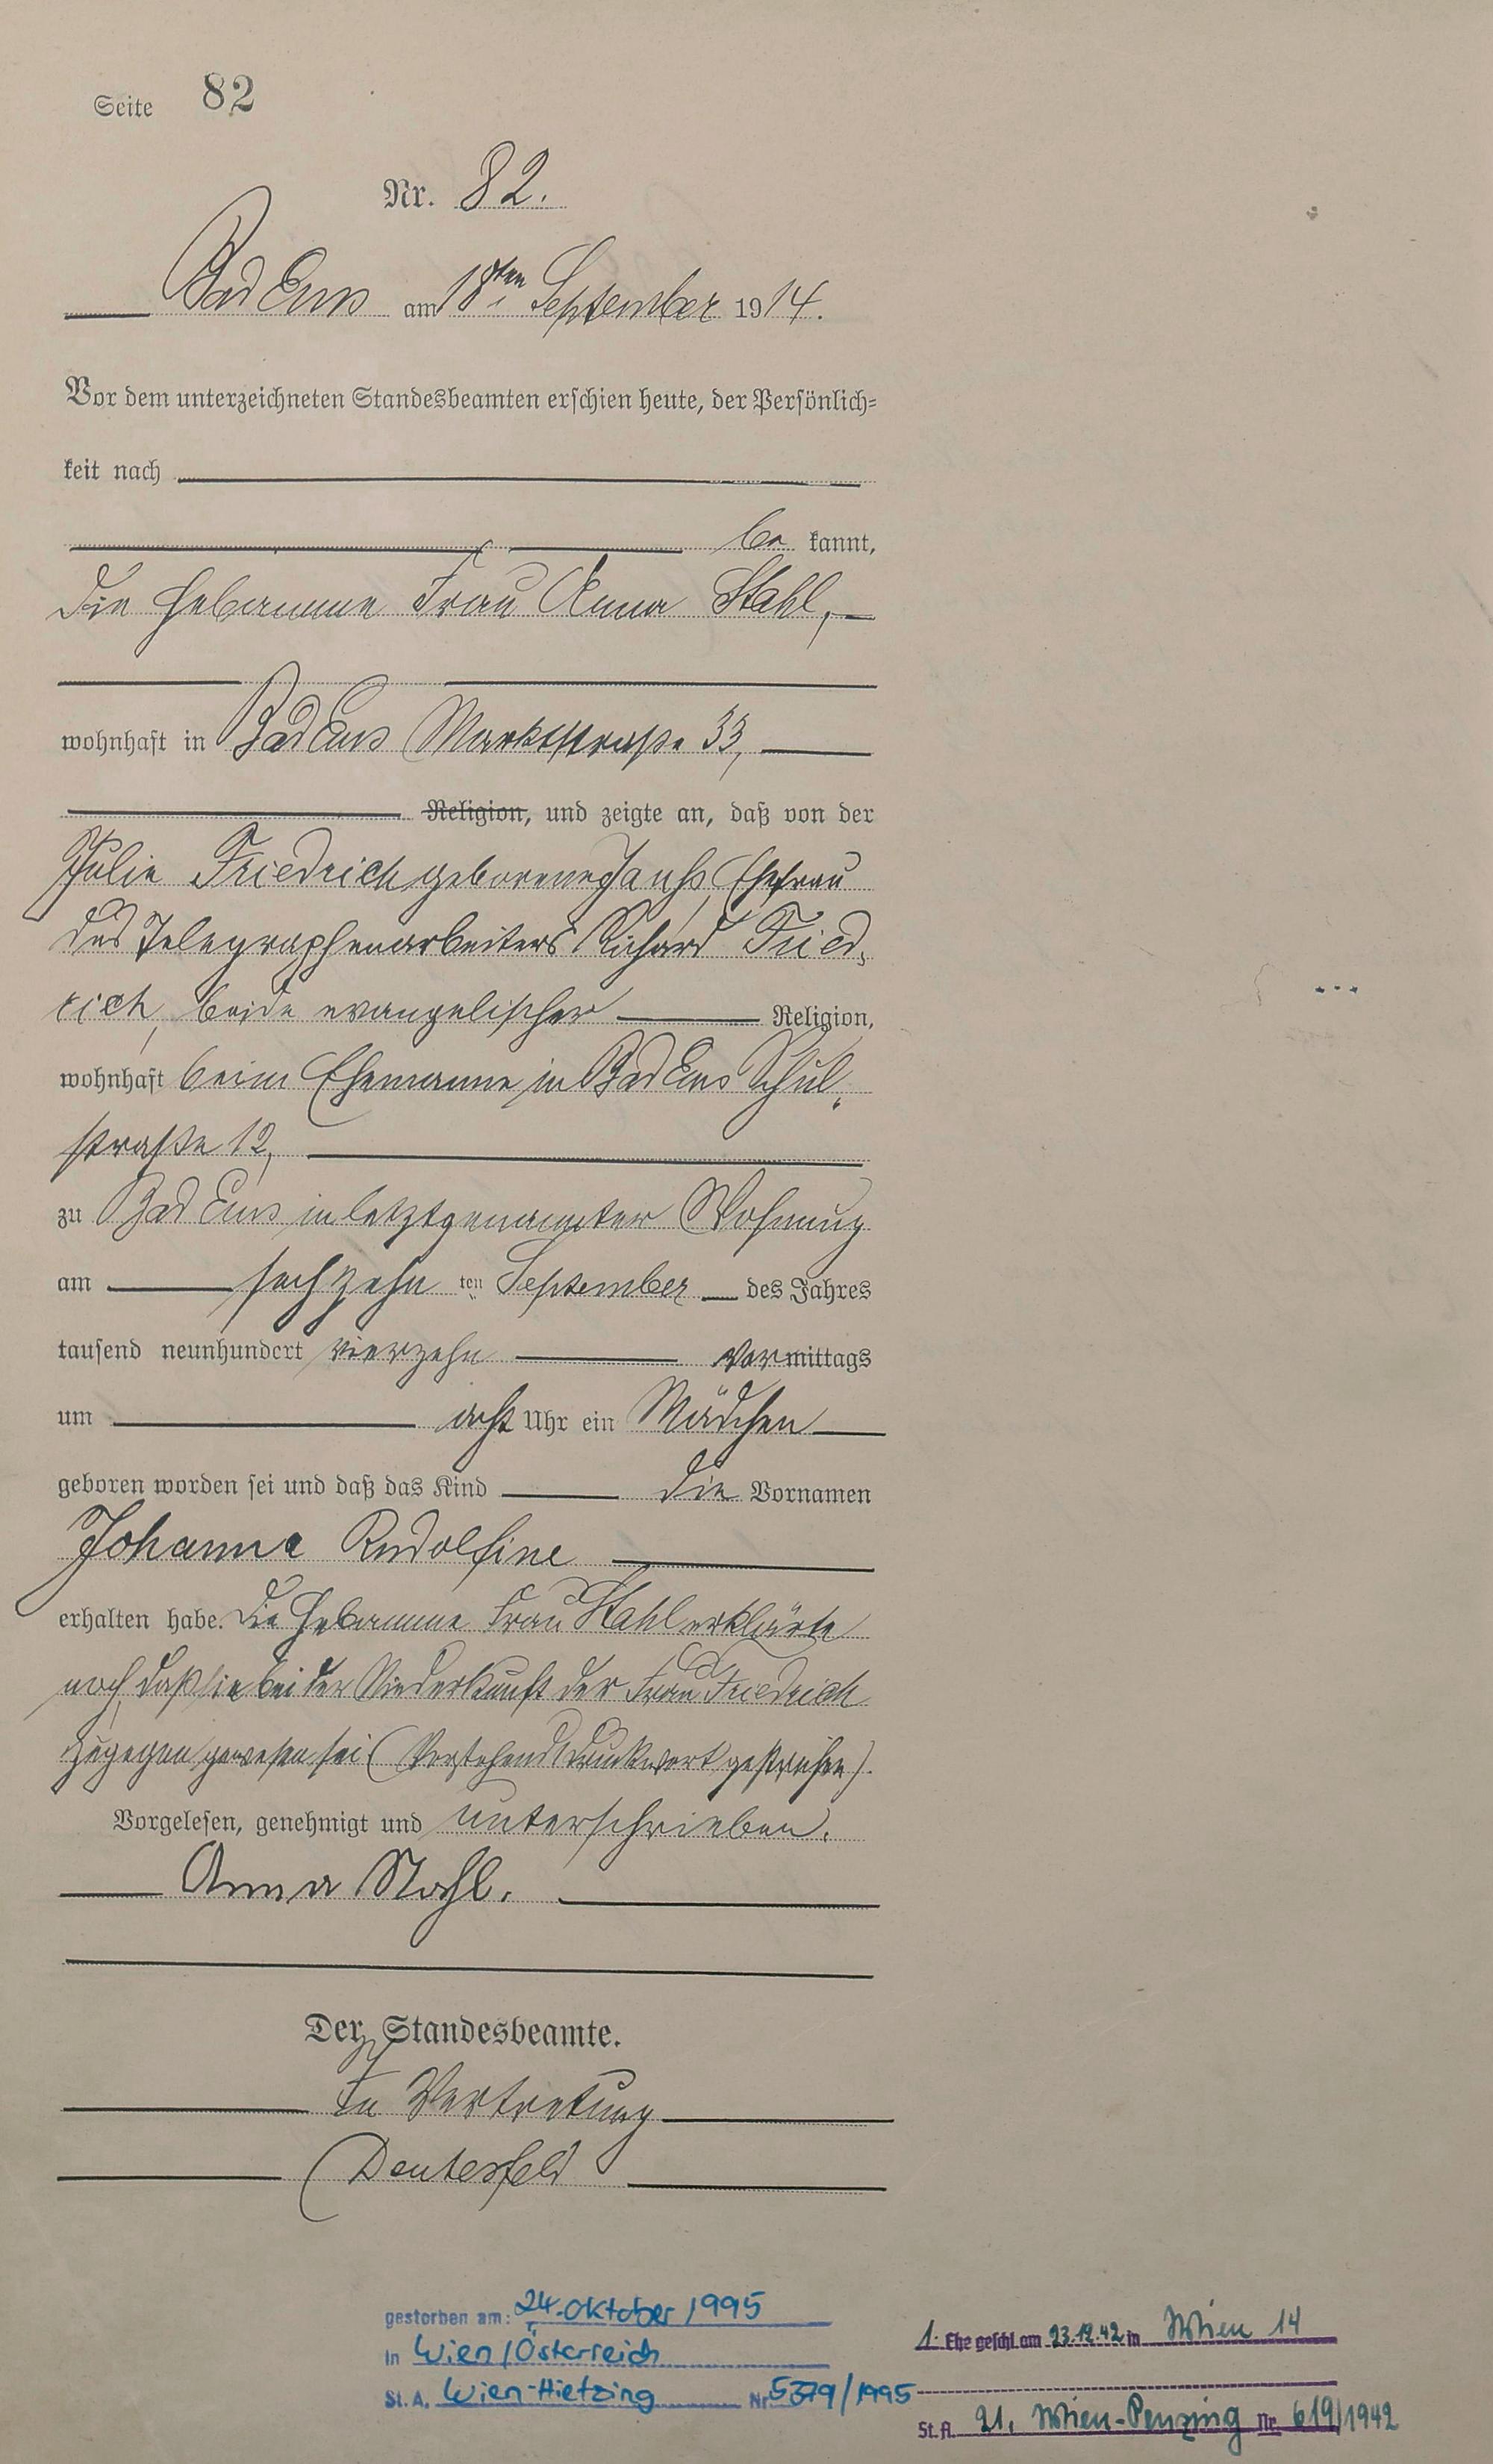 Seite 82
Nr. 82.
Bad Ems am 18ten September 1914.
Vor dem unterzeichneten Standesbeamten erschien heute, der Persönlich=
keit nach
be kannt,
die Hebamme Frau Anna Stahl,
wohnhaft in Bad Ems Marktstraße 33,
Religion, und zeigte an, daß von der
Julie Friedrich geborene Ehefrau
des Telegraphenarbeiters Richard Fried,
rich, beide evangelischer Religion,
wohnhaft beim Ehemanne in Bad Ems Schul,
straße 12,
zu Bad Ems in letztgenannter Wohnung
am sechzehn ten September des Jahres
tausend neunhundert vierzehn vormittags
um acht Uhr ein Mädchen
geboren worden sei und daß das Kind die Vornamen
Johanna Rudolfine
erhalten habe. Die Hebamme Frau Stahl erklärte
noch, daß sie bei der Niederkunft der Frau Friedrich
zugegen gewesen sei (Vorstehend 1 Druckwort gestrichen).
Vorgelesen, genehmigt und unterschrieben.
Anna Stahl.
Der Standesbeamte.
In Vertretung
gestorben am: 24. Oktober 1995
in Wien/Österreich
St. A. Wien-Hietzing Nr 5379/1995
1. Ehe geschl. am 23.12.42 in Wien 14
St. A. 21. Wien-Penzing Nr. 619/1942